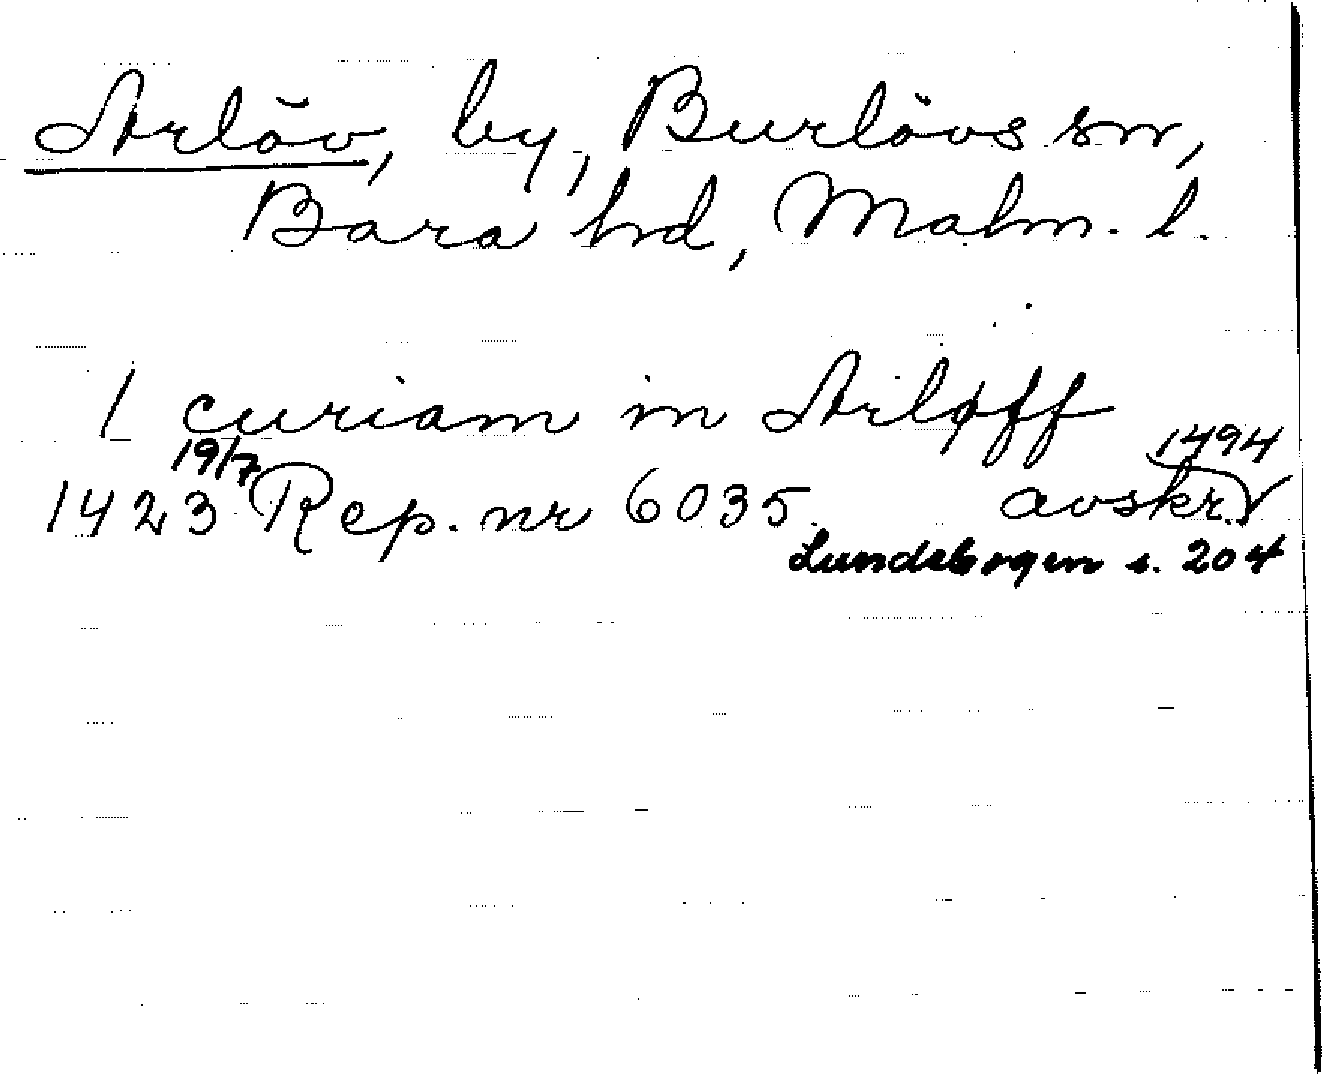 Arlöv, by, Burlövs sn,
Bara hd, Malm. l.
1 curiam in Arløff
1423 19/7 Rep. nr 6035 avskr. 1494
Lundebogen s. 204